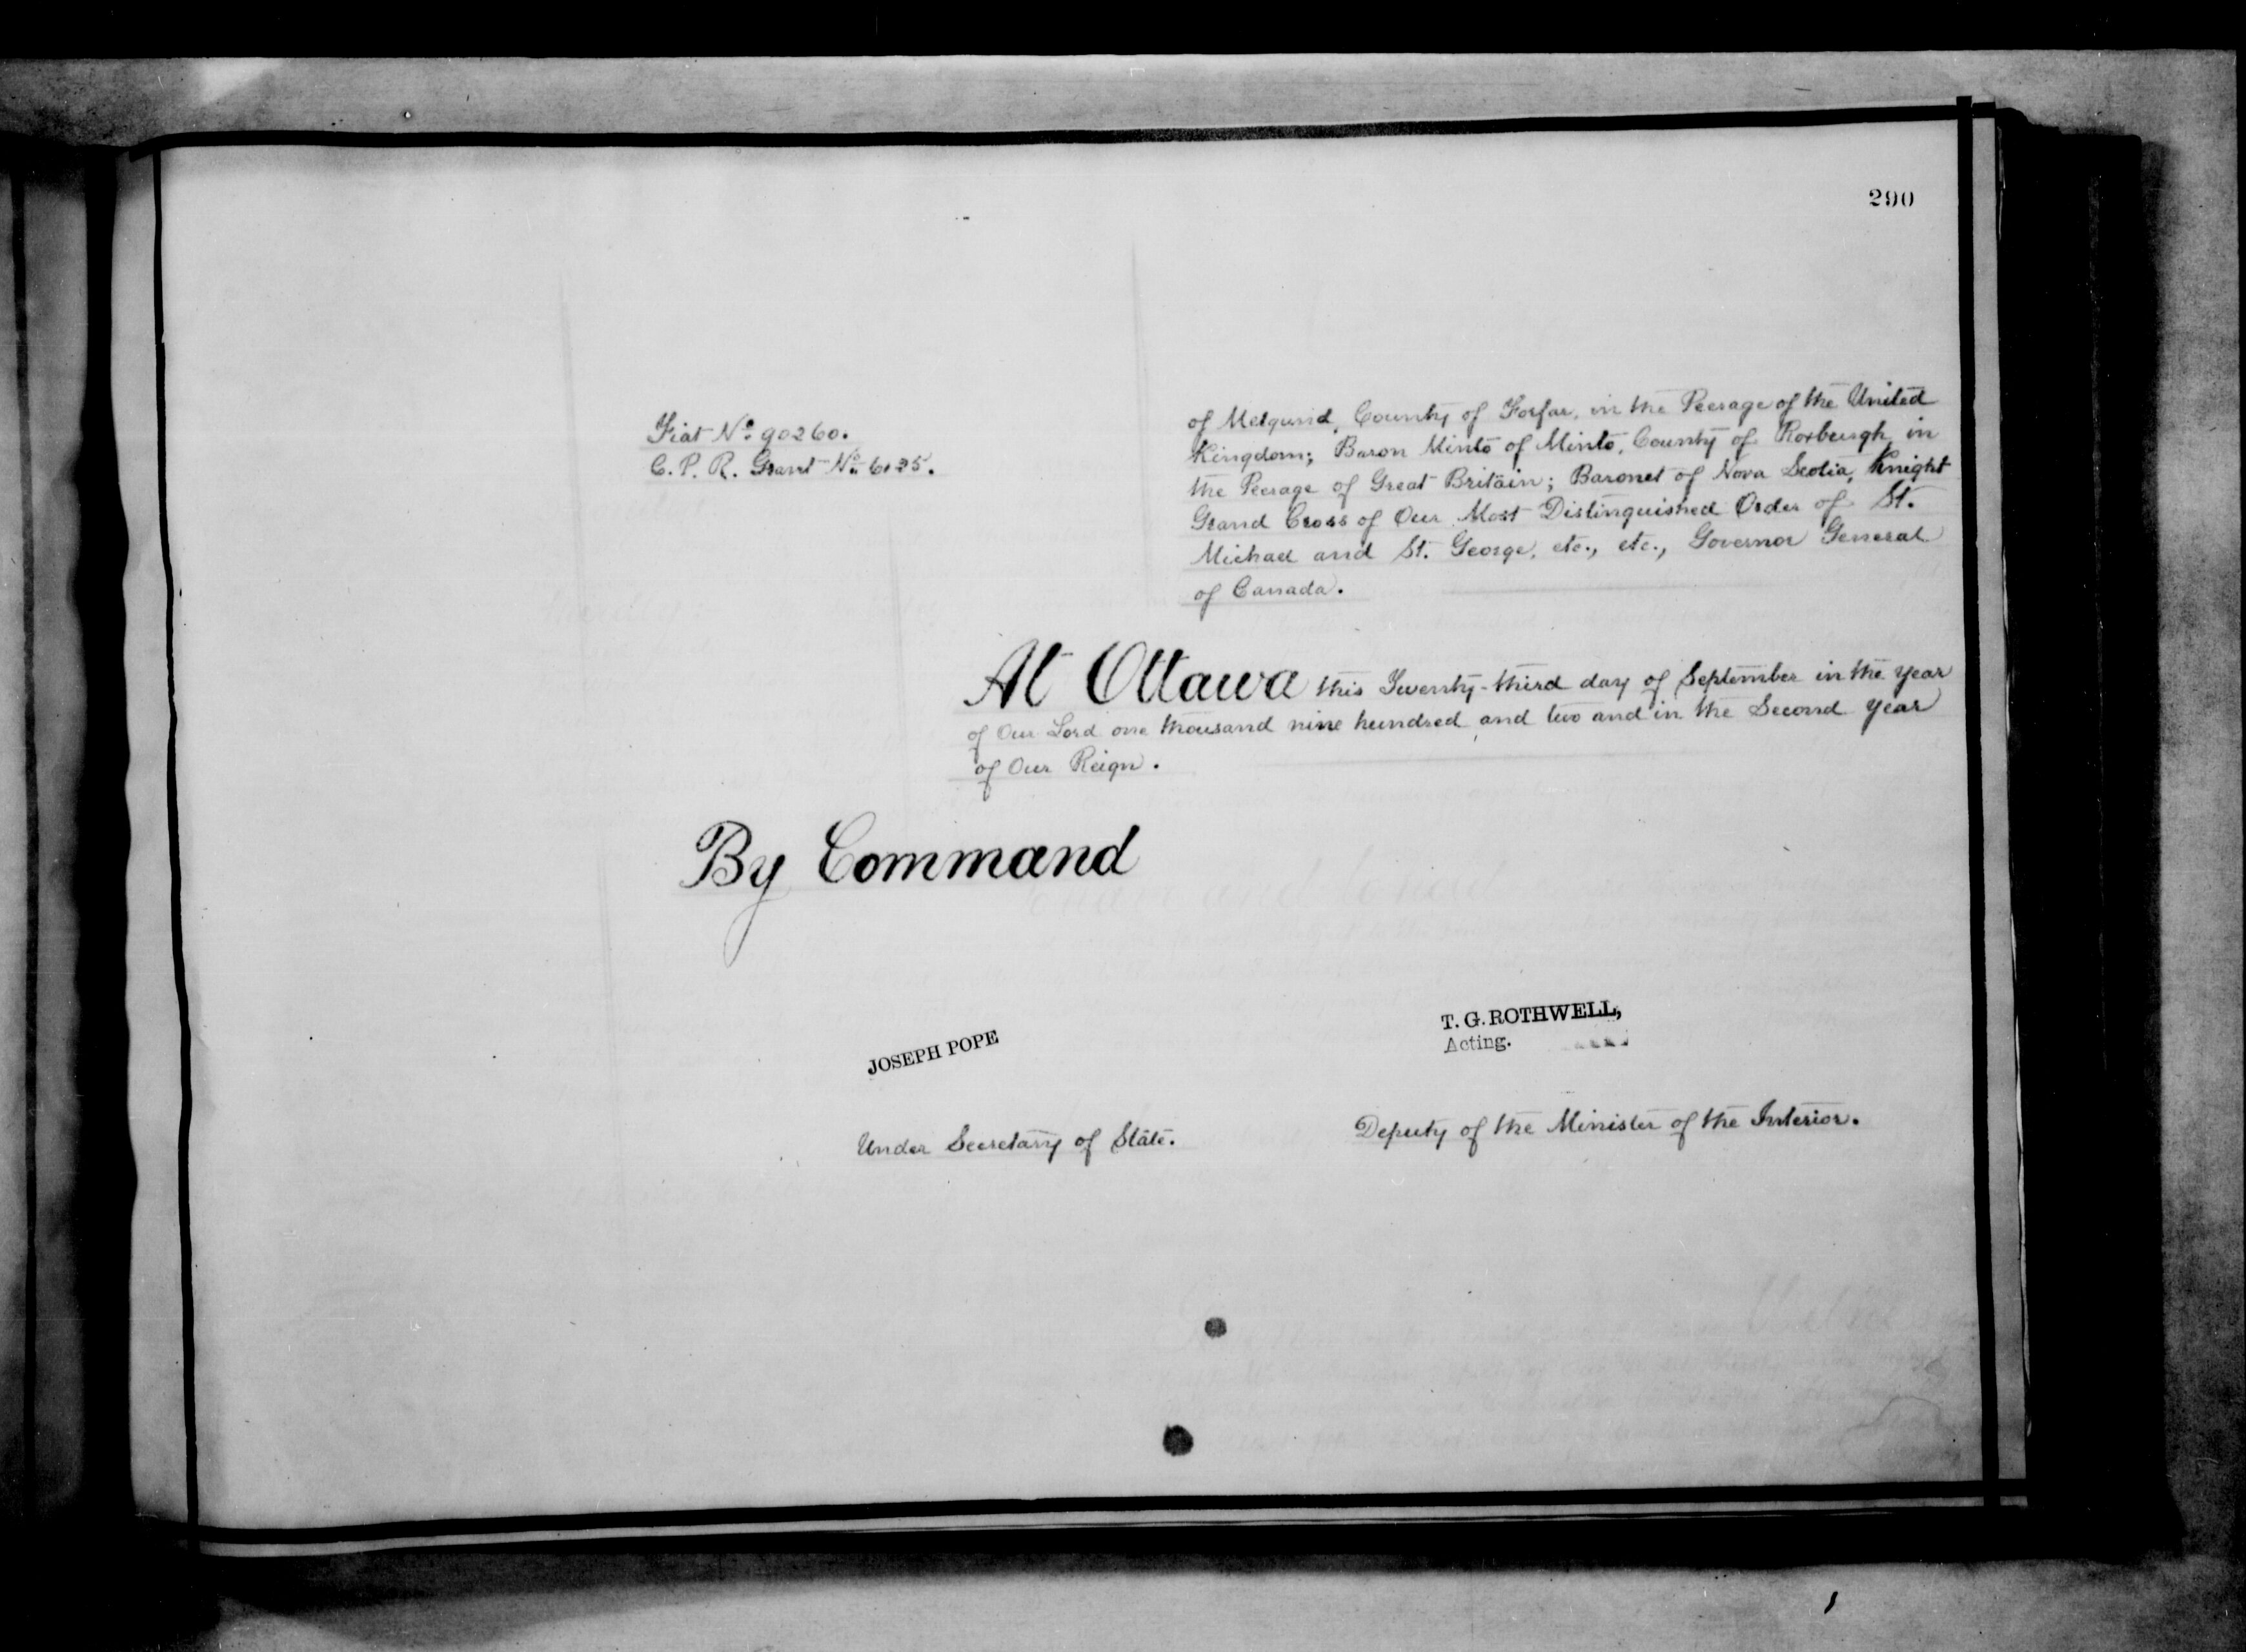 290
Fiat No. 90260.
C. P. R. Grant No. 6135.
of Melgund, County of Forfar, in the Peerage of the United
Kingdom; Baron Minto of Minto, County of Roxburgh, in
the Peerage of Great Britain; Baronet of Nova Scotia, Knight
Grand Cross of Our Most Distinguished Order of St.
Michael and St. George, etc., etc., Governor General
of Canada.
At Ottawa this Twenty-third day of September in the year
of Our Lord one thousand nine hundred and two and in the Second year
of Our Reign.
By Command
JOSEPH POPE
Under Secretary of State.
T. G. ROTHWELL,
Acting.
Deputy of the Minister of the Interior.